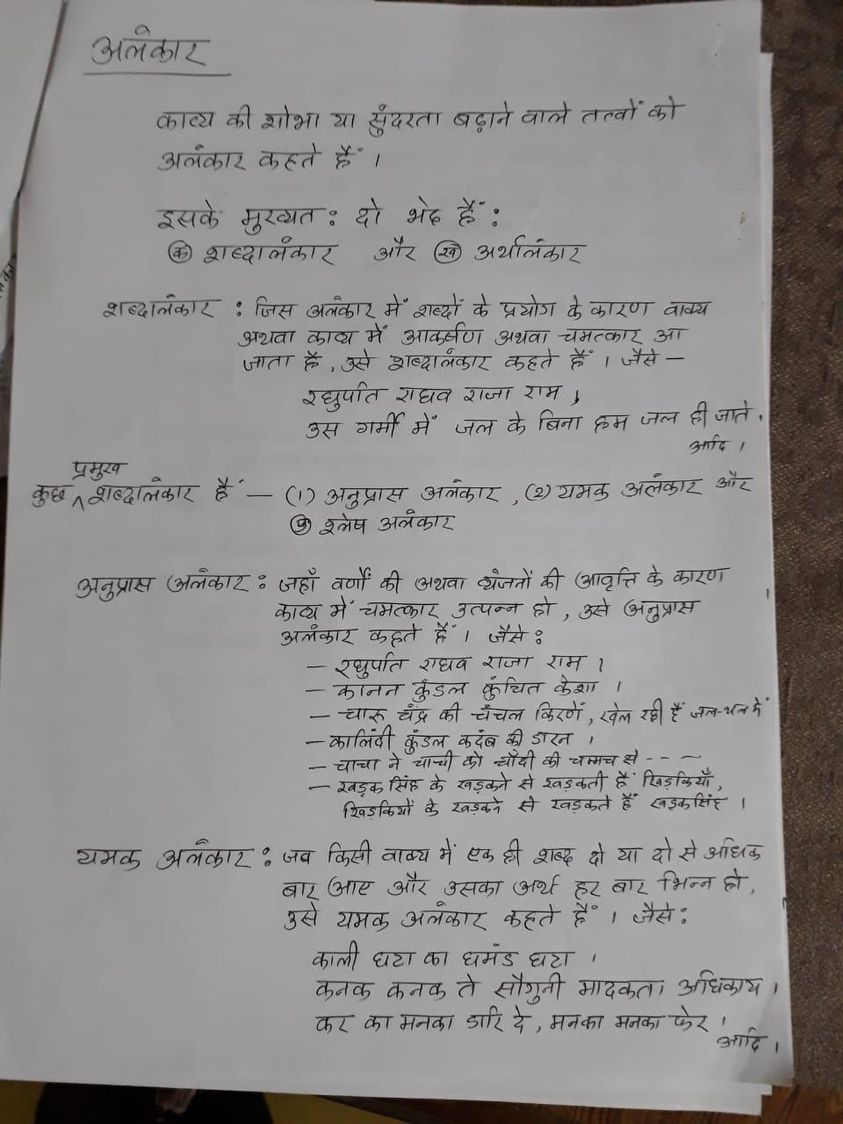 अलंकार
काव्य की शोभा या सुंदरता बढ़ाने वाले तत्वों को
अलंकार कहते हैं ।
इसके मुख्यत: दो भेद हैं :
(क) शब्दालंकार और (ख) अर्थालंकार
शब्दालंकार : जिस अलंकार में शब्दों के प्रयोग के कारण वाक्य
अथवा काव्य में आकर्षण अथवा चमत्कार आ
जाता है , उसे शब्दालंकार कहते हैं । जैसे —
रघुपति राघव राजा राम ,
उस गर्मी में जल के बिना हम जल ही जाते .
आदि ।
प्रमुख
कुछ ^ शब्दालंकार हैं — (1) अनुप्रास अलंकार , (2) यमक अलंकार और
(3) श्लेष अलंकार
अनुप्रास अलंकार : जहाँ वर्णों की अथवा व्यंजनों की आवृत्ति के कारण
काव्य में चमत्कार उत्पन्न हो , उसे अनुप्रास
अलंकार कहते हैं । जैसे :
— रघुपति राघव राजा राम ।
— कानन कुंडल कुंचित केशा ।
— चारू चंद्र की चंचल किरणें , खेल रही हैं जल-थल में
— कालिंदी कुंडल कदंब की डारन ।
— चाचा ने चाची को चाँदी की चम्मच से - - -
— खड़क सिंह के खड़कने से खड़कती हैं खिड़कियाँ,
खिड़कियों के खड़कने से खड़कते हैं खड़कसिंह ।
यमक अलंकार : जब किसी वाक्य में एक ही शब्द दो या दो से अधिक
बार आए और उसका अर्थ हर बार भिन्न हो ,
उसे यमक अलंकार कहते हैं । जैसे :
काली घटा का घमंड घटा ।
कनक कनक ते सौगुनी मादकता अधिकाय ।
कर का मनका डारि दे , मनका मनका फेर ।
आदि ।